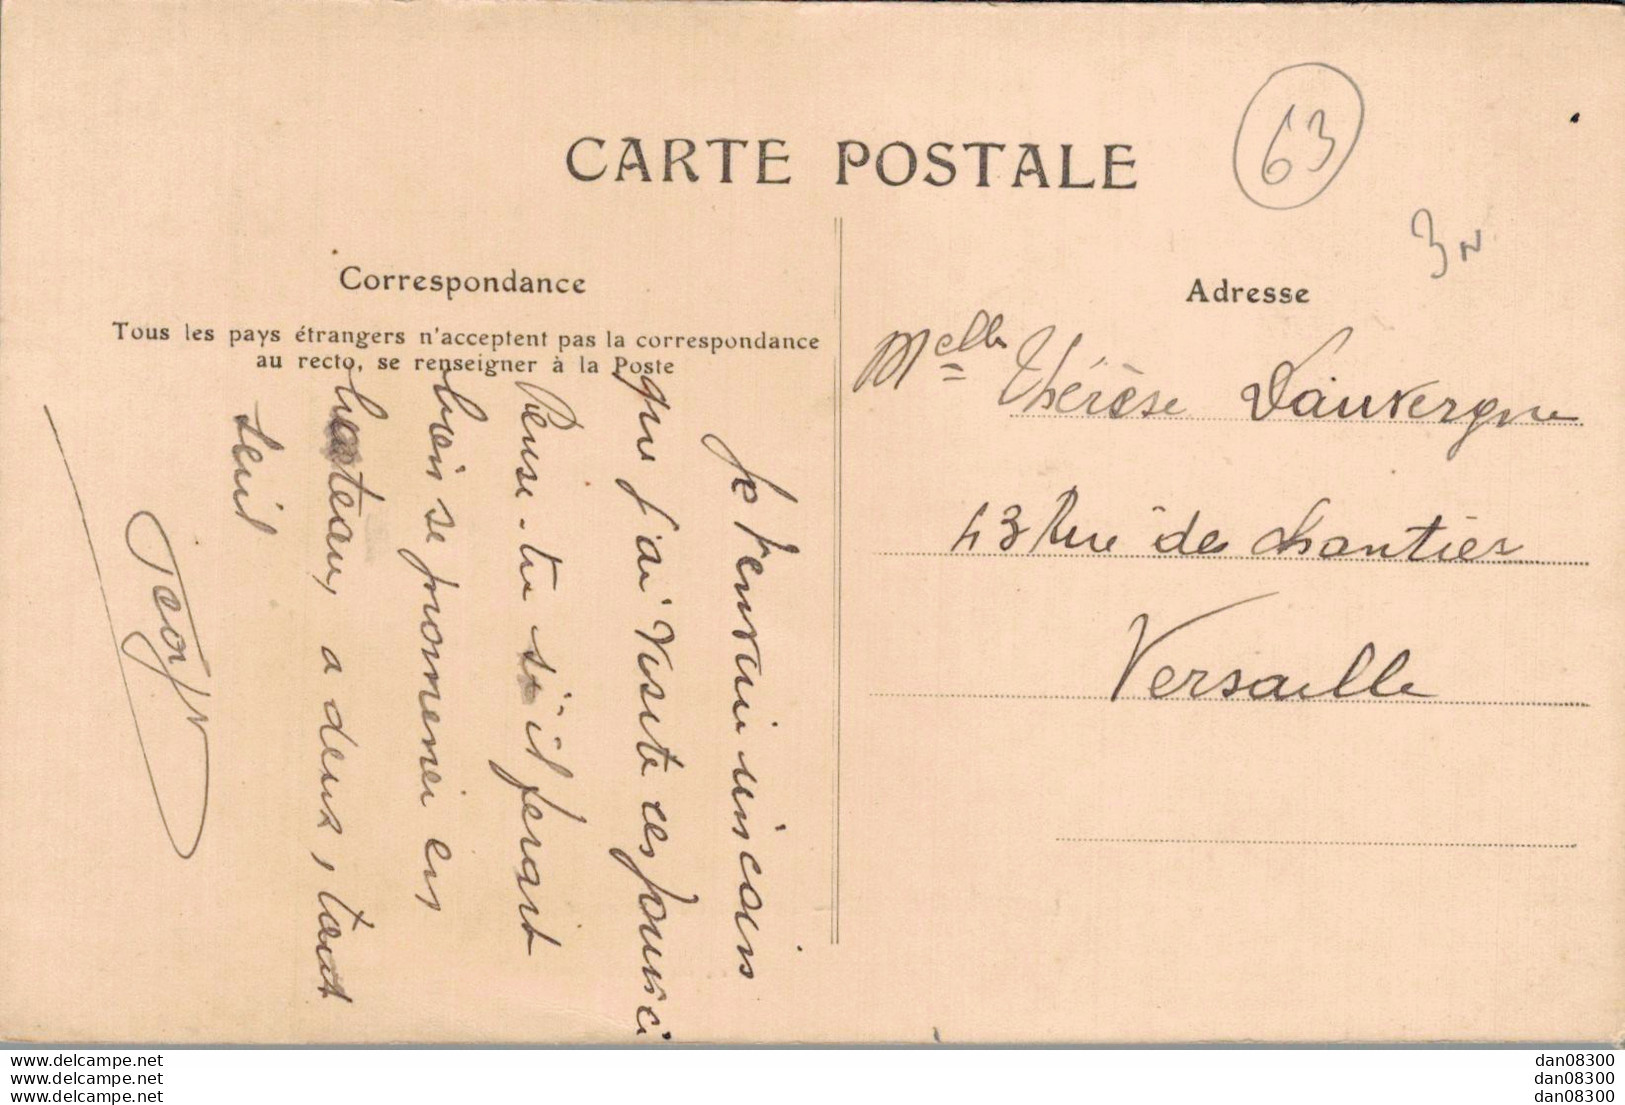 CARTE POSTALE
63
3
Correspondance
Tous les pays étrangers n'acceptent pas la correspondance
au recto, se renseigner à la Poste
Je t'envoie un coin
que j'ai visité ces jours ci
Pense-tu s'il ferait
bien se promener en
bateau, a deux, tout
seul
Adresse
Melle Thérèse Dauvergne
43 Rue de chantier
Versaille
www.delcampe.net
www.delcampe.net
www.delcampe.net
dan08300
dan08300
dan08300